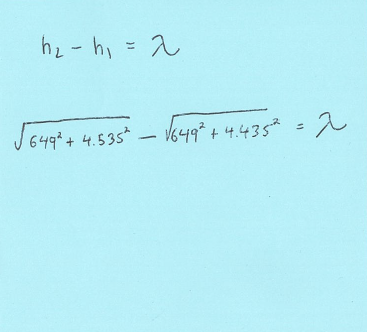 h₂ - h₁ = λ
√649² + 4.535² - √649² + 4.435² = λ